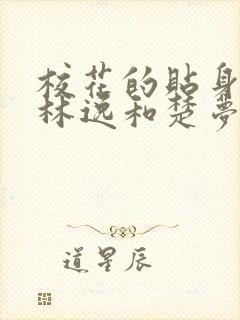 校花的贴身
林逸和楚夢
道星辰